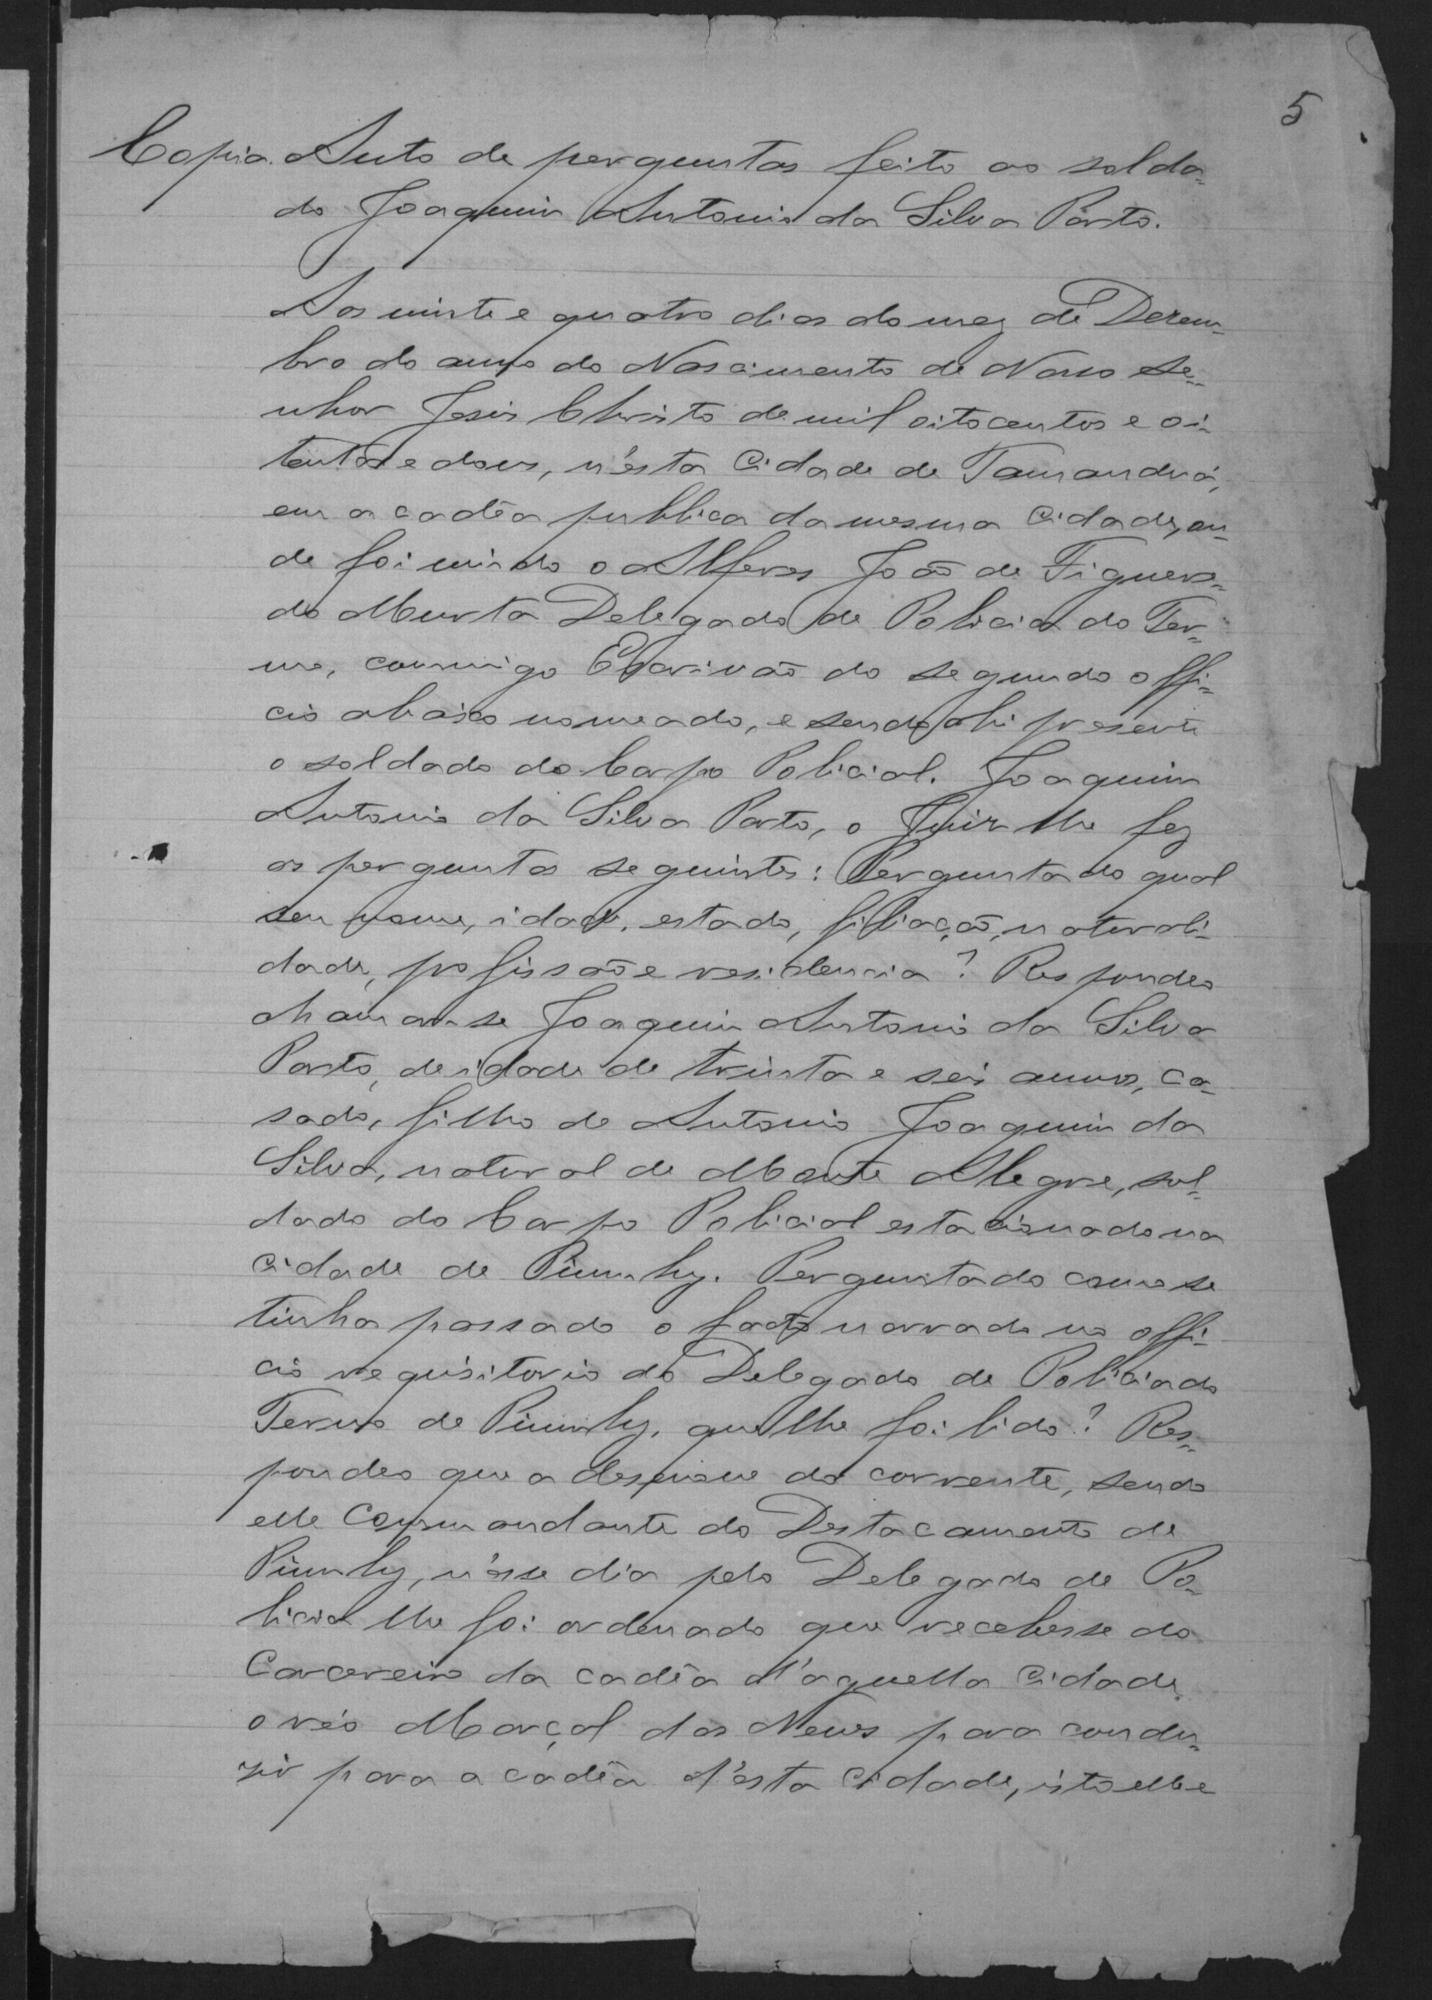 5
Copia. Auto de perguntas feito ao solda-
do Joaquim Antonio da Silva Porto.
Aos vinte e quatro dias do mez de Dezem-
bro do anno do Nascimento de Nosso Se-
nhor Jesus Christo de mil oitocentos e oi-
tenta e dous, n'esta Cidade de Tamanduá,
em a cadêa publica da mesma Cidade, on-
de foi vindo o Alferes João de Figuere-
do Murta Delegado de Policia do Ter-
mo, commigo Escrivão do segundo offi-
cio abaixo nomeado, e sendo ahi presente
o soldado do Corpo Policial. Joaquim
Antonio da Silva Porto, o Juiz lhe fez
as perguntas seguintes: Perguntado qual
seu nome, idade, estado, filiação, naturali-
dade, profissão e residencia? Respondeo
chamar-se Joaquim Antonio da Silva
Porto, de idade de trinta e seis annos, ca-
sado, filho de Antonio Joaquim da
Silva, natural de Monte Alegre, sol-
dado do Corpo Policial estacionado na
cidade de Piumhy. Perguntado como se
tinha passado o facto narrado no offi-
cio requisitorio do Delegado de Policia do
Termo de Piumhy, que lhe foi lido? Res-
pondeo que a desenove do corrente, sendo
elle Commandante do Destacamento de
Piumhy, n'esse dia pelo Delegado de Po-
licia lhe foi ordenado que recebesse do
Carcereiro da cadêa d'aquella Cidade
o réo Marçal das Neves para condu-
zir para a cadêa d'esta Cidade, isto elle